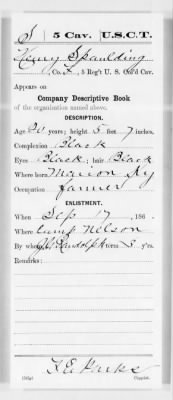 S | 5 Cav. | U.S.C.T.
Henry Spaulding
, Co. F, 5 Reg't U. S. Col'd Cav.
Appears on
Company Descriptive Book
of the organization named above.
DESCRIPTION.
Age 20 years; height 5 feet 7 inches.
Complexion Black
Eyes Black; hair Black
Where born Marion Ky
Occupation farmer
ENLISTMENT.
When Sep 17, 186 .
Where Camp Nelson
By whom Randolph term 3 y'rs.
Remarks:
Copyist.